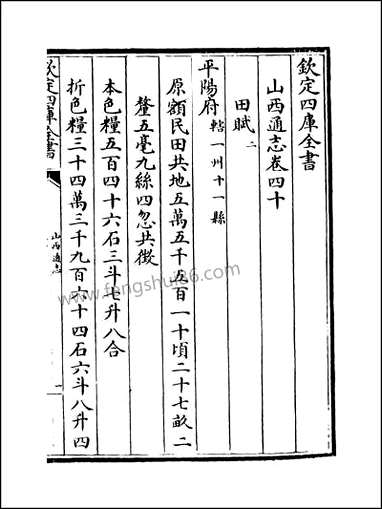 欽定四庫全書
山西通志卷四十
田賦二
平陽府轄一州十一縣
原額民田共地五萬五千五百一十頃二十七畝二
釐五毫九絲四忽共徴
本色糧五百四十六石三斗七升八合
折色糧三十四萬三千九百六十四石六斗八升四
欽定四庫全書
山西通志
一
www.fengshui86.com